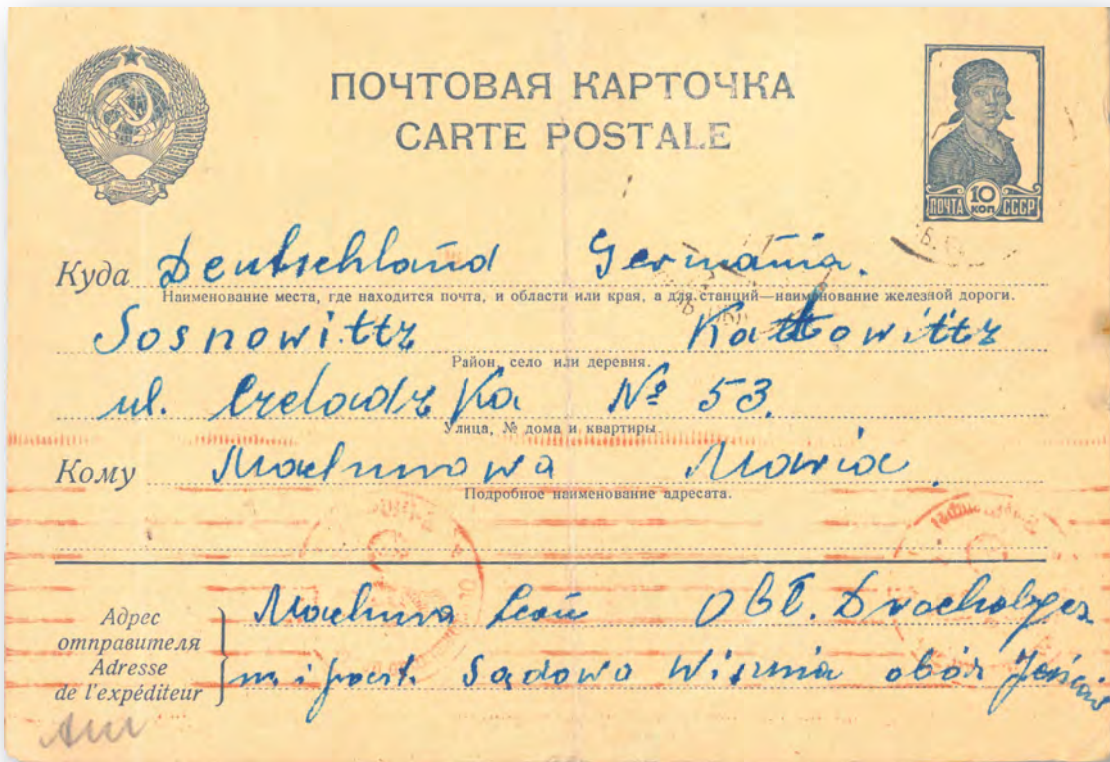 ПОЧТОВАЯ КАРТОЧКА
CARTE POSTALE
ПОЧТА 10 КОП СССР
Куда Deutschland Germania.
Наименование места, где находится почта, и области или края, а для станций—наименование железной дороги.
Sosnowittz Kattowittz
Район, село или деревня.
ul. Czeladzka № 53.
Улица, № дома и квартиры
Кому Machnowa Maria
Подробное наименование адресата.
Адрес
отправителя
Adresse
de l'expéditeur
Machura Leon Obł.
m. i poczt. Sądowa Wisznia obóz